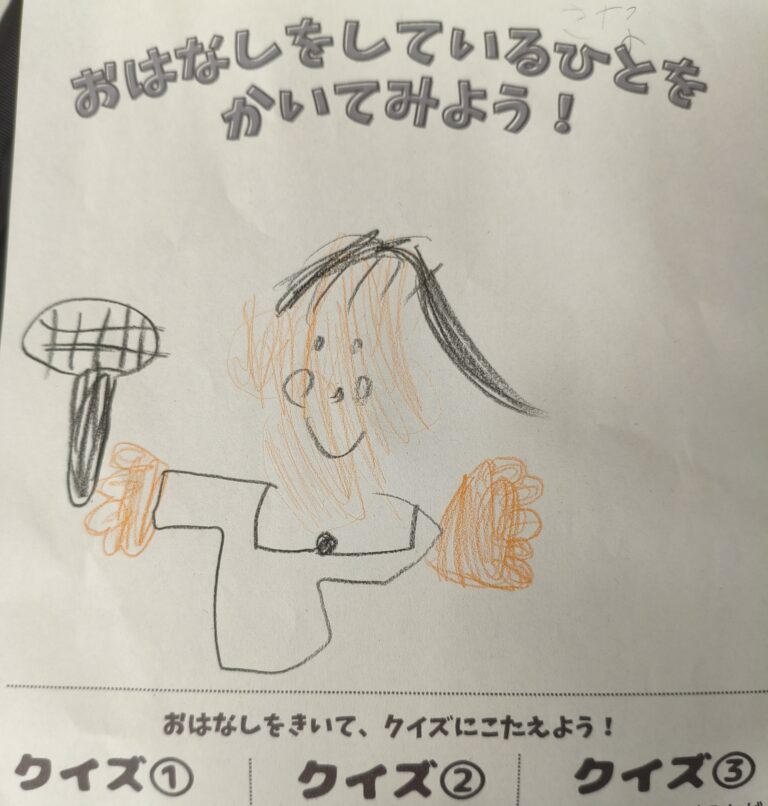 おはなしをしているひとを
かいてみよう！
おはなしをきいて、クイズにこたえよう！
クイズ①
クイズ②
クイズ③